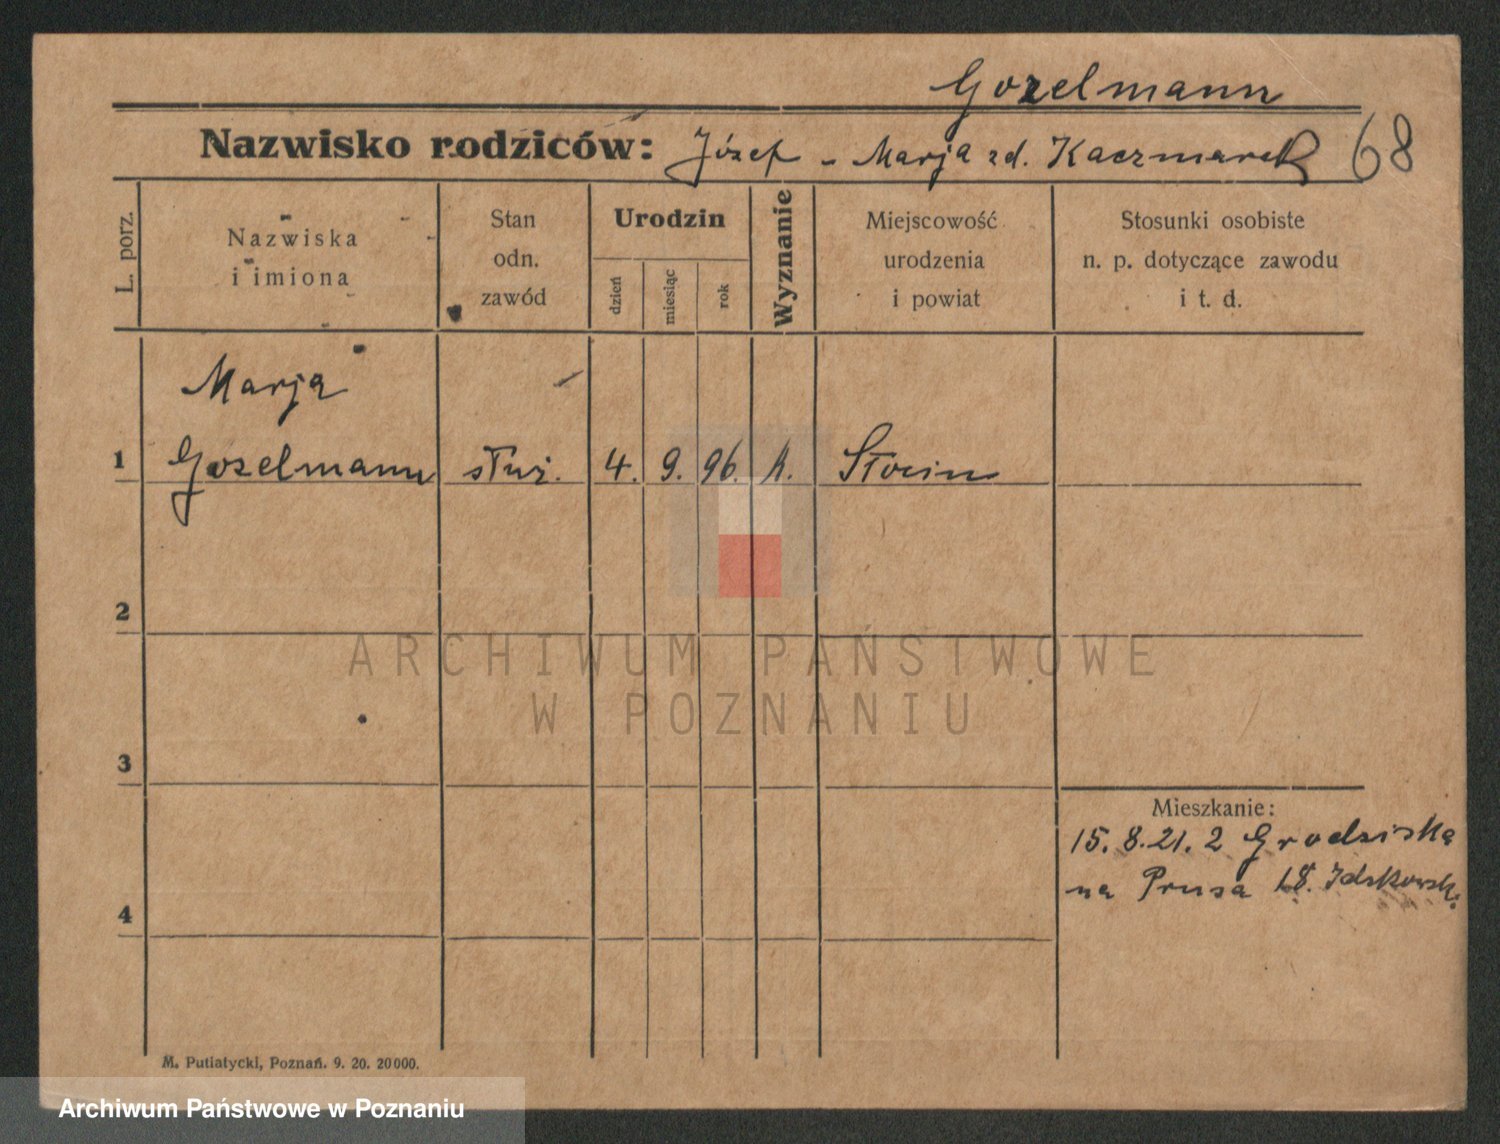 Gozelmann
Nazwisko rodziców: Józef - Marja zd. Kaczmarek 68
L. porz.
Nazwiska
i imiona
Stan
odn.
zawód
Urodzin
dzień
miesiąc
rok
Wyznanie
Miejscowość
urodzenia
i powiat
Stosunki osobiste
n. p. dotyczące zawodu
i t. d.
Marja
1 Gozelmann służ. 4. 9. 96. k.
2
ARCHIWUM PAŃSTWOWE
W POZNANIU
3
Mieszkanie:
15. 8. 21. z Grodziska
na Prusa 18.
4
M. Putiatycki, Poznań. 9. 20. 20000.
Archiwum Państwowe w Poznaniu